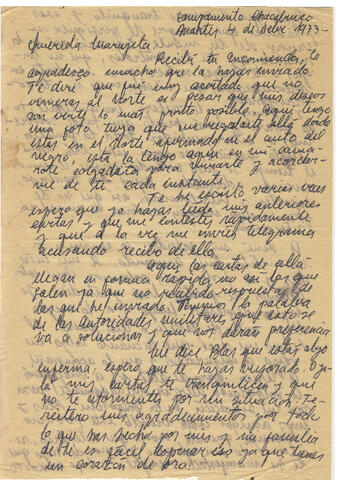 Campamento Chacabuco
Martes 4 de Dcbre 1973-
Querida Marujita
Recibí tu encomienda, te
agradesco mucho que la hayas enviado
Te diré que fue muy acertado que no
vinieras al norte es pesar que mis deseos
son verte lo mas pronto posible, aqui tengo
una foto tuya que me regalaste ella donde
estas en el norte afirmado en el auto del
negro, esta la tengo aqui en mi cama-
rote colgadita para mirarte y acordar-
me de ti cada instante.
Te he escrito varias veces
espero que ya hayas leido mis anteriores
cartas y que me contestes rapidamente
y que a la vez me envies telegrama
acusando recibo de ella.
Aqui las cartas de allá
llegan en forma rapida no asi las que
salen ya que no recibido respuestas de
las que he enviado. Tenemos la palabra
de las autoridades militares que esto se
va a solucionar y que nos daran preferencia
Me dice Blas que estas algo
enferma, espero que te hayas mejorado
mis cartas te tranquilicen y que
no te atormentes por mi situación, re-
itero mis agradecimientos por todo
lo que has hecho por mis y mi familia
de ti es facil esperar eso ya que tienes
un corazón de oro.